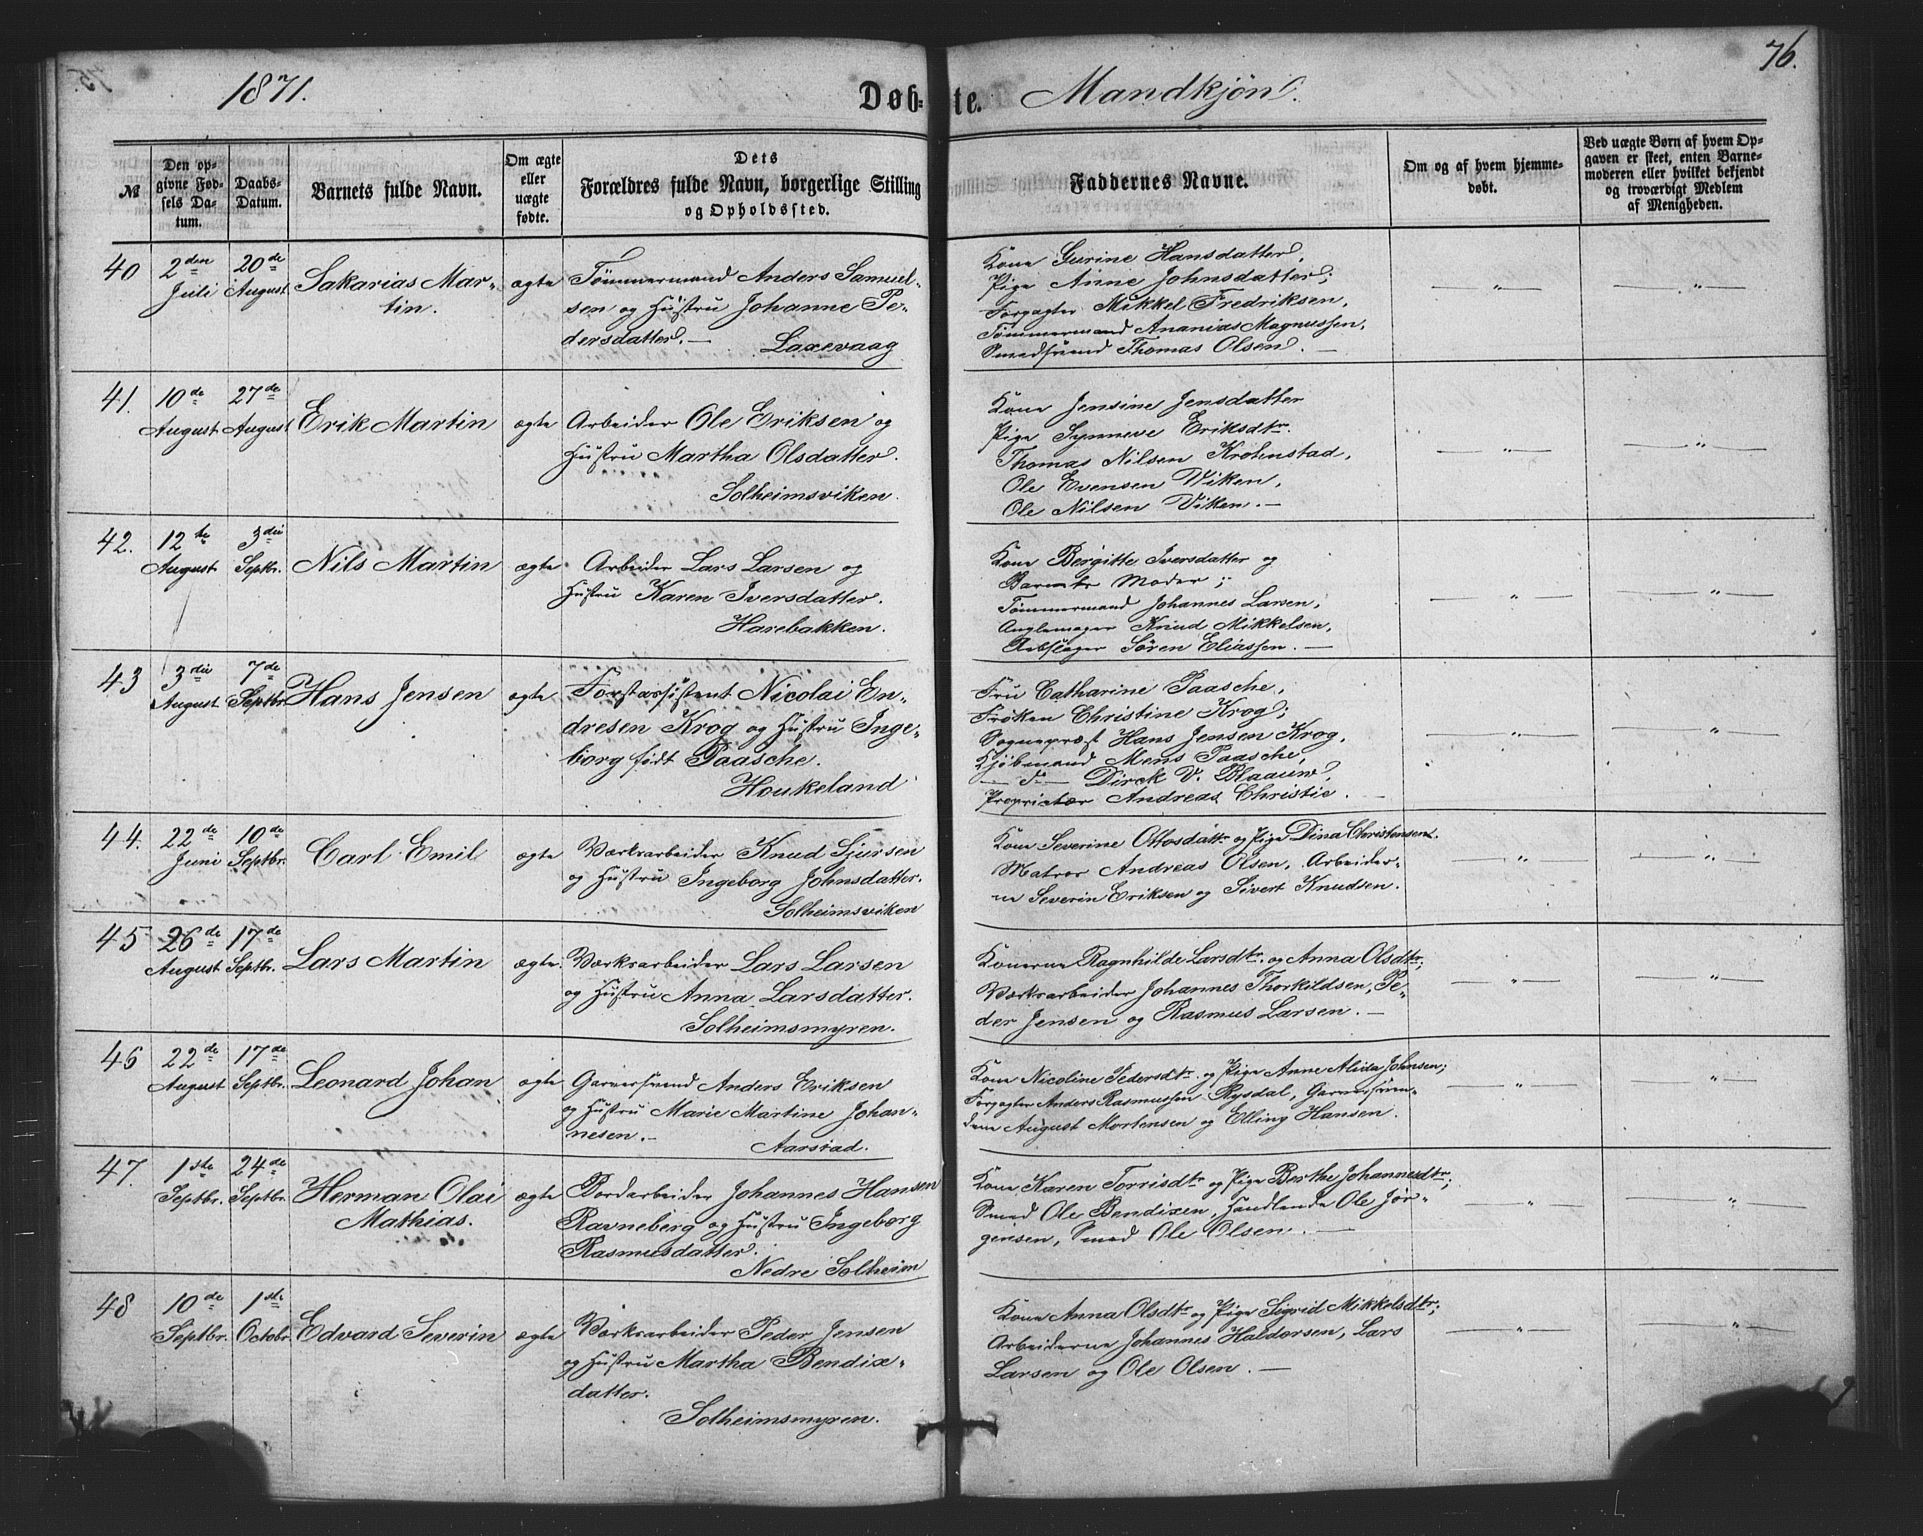 1871.
Døb-te. Mandkjøn.
76.
№
Den opgivne Fødsels Datum.
Daabs-Datum.
Barnets fulde Navn.
Om ægte eller uægte fødte.
Dets Forældres fulde Navn, borgerlige Stilling og Opholdssted.
Faddernes Navne.
Om og af hvem hjemmedøbt.
Ved uægte Børn af hvem Opgaven er skeet, enten Barnemoderen eller hvilket bekjendt og troværdigt Medlem af Menigheden.
40 2den Juli 20de August Sakarias Martin. ægte
Tømmermand Anders Samuel-
sen og Hustru Johanne Pe-
dersdatter. — Laxevaag
Kone Gurine Hansdatter,
Pige Anne Johnsdatter;
Forpagter Mikkel Fredriksen,
Tømmermand Ananias Magnussen,
Smedsvend Thomas Olsen. —
— " — — " —
41. 10de August 27de August Erik Martin ægte
Arbeider Ole Eriksen og
Hustru Martha Olsdatter.
Solheimsviken.
Kone Jensine Jensdatter
Pige Synneve Eriksdtr.
Thomas Nilsen Krohnstad,
Ole Evensen Wiken,
Ole Nilsen Viken. —
— " — — " —
42. 12te August 3die Septbr. Nils Martin ægte
Arbeider Lars Larsen og
Hustru Karen Iversdatter.
Harebakken.
Kone Bergitte Iversdatter og
Barnets Moder;
Tømmermand Johannes Larsen,
Anglemager Knud Mikkelsen,
Rebslager Søren Eliassen. —
— " — — " —
43 3die August 7de Septbr. Hans Jensen ægte
Forstassistent Nicolai En-
dresen Krog og Hustru Inge-
borg født Paasche.
Houkeland
Fru Catharine Paasche,
Frøken Christine Krog;
Sognepræst Hans Jensen Krog,
Kjøbmand Mens Paasche,
— do — Dirck V. Blaauw,
Proprietær Andreas Christie. —
— " — — " —
44. 22de Juni 10de Septbr. Carl Emil ægte
Værksarbeider Knud Sjursen
og Hustru Ingeborg Johnsdatter.
Solheimsviken
Kone Severine Ottosdattr og Pige Dina Christensen.
Matros Andreas Olsen, Arbeider-
ne Severin Eriksen og Sivert Knudsen.
— " — — " —
45 26de August 17de Septbr. Lars Martin ægte.
Værksarbeider Lars Larsen
og Hustru Anna Larsdatter.
Solheimsmyren.
Konerne Ragnhilde Larsdtr. og Anna Olsdtr;
Værksarbeider Johannes Thorkildsen, Pe-
der Jensen og Rasmus Larsen. —
— " — — " —
46 22de August 17de Septbr. Leonard Johan ægte
Garversvend Anders Eriksen
og Hustru Marie Martine Johan-
nesen. — Aarstad.
Kone Nicoline Pedersdtr. og Pige Anne Alida Johnsen;
Forpagter Anders Rasmussen Rysdal, Garversven-
dene August Mortensen og Elling Hansen.
— " — — " —
47. 1ste Septbr. 24de Septbr. Herman Olai Mathias. ægte
Bordarbeider Johannes Hansen
Ravneberg og Hustru Ingeborg
Rasmusdatter.
Nedre Solheim
Kone Karen Torrisdtr og Pige Berthe Johannesdtr;
Smed Ole Bendixen, Handlende Ole Jør-
gensen, Smed Ole Olsen. —
— " — — " —
48 10de Septbr. 1ste Octobr. Edvard Severin ægte
Værksarbeider Peder Jensen
og Hustru Martha Bendix-
datter.
Solheimsmyren.
Kone Anna Olsdtr og Pige Sigrid Mikkelsdtr;
Arbeiderne Johannes Haldorsen, Lars
Larsen og Ole Olsen. —
— " — — " —